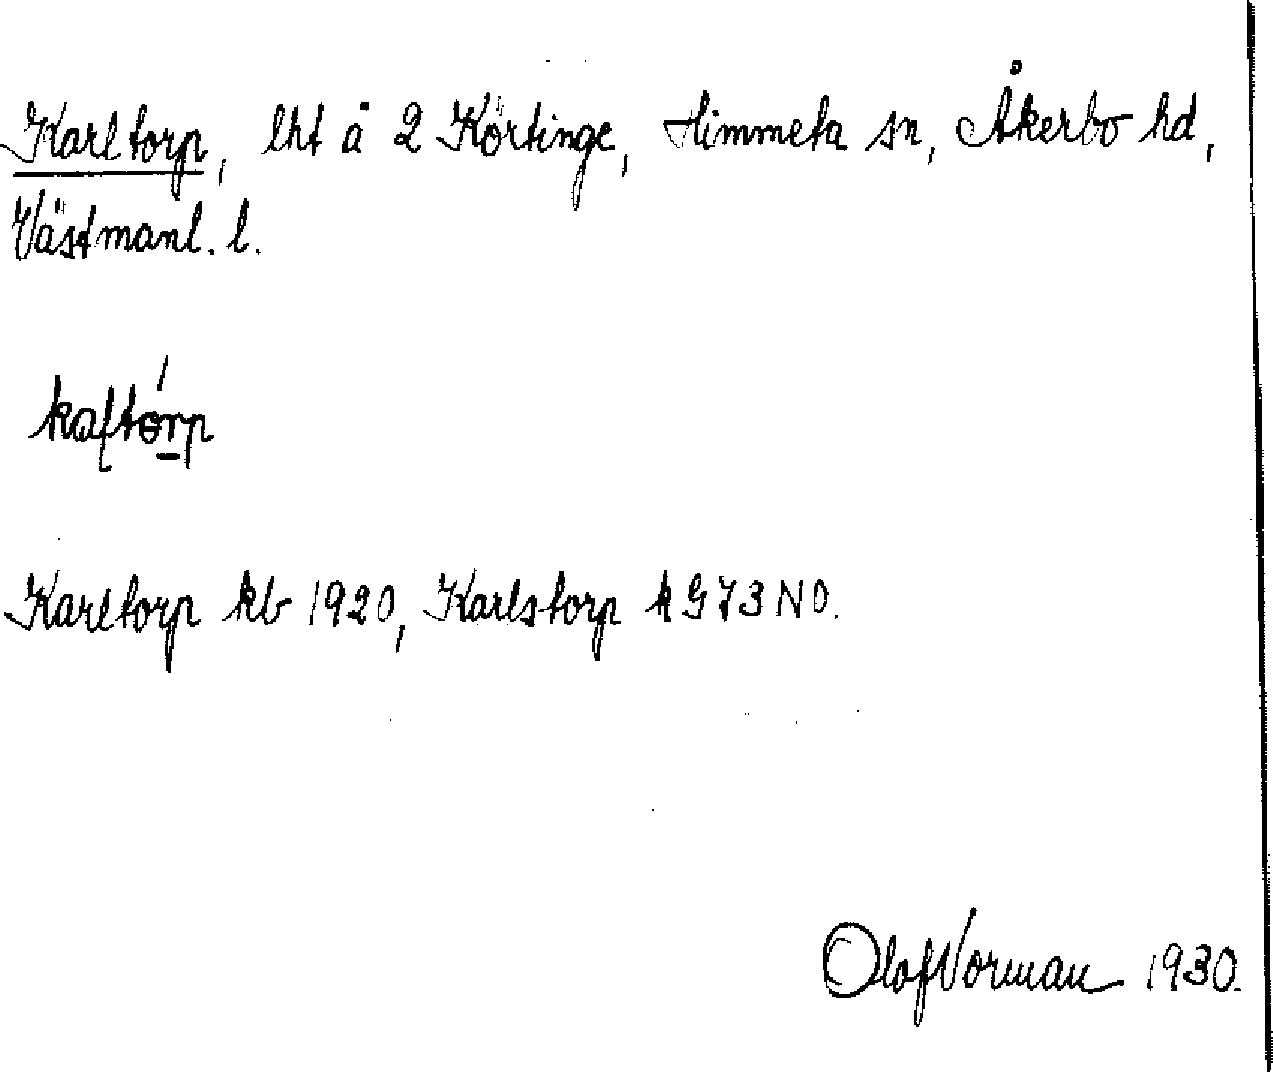 Karltorp, lht å 2 Körtinge, Himmeta sn, Åkerbo hd,
Västmanl. l.
kaftórp
Karltorp kb 1920, Karlstorp k G73 NO.
Olof Norman 1930.